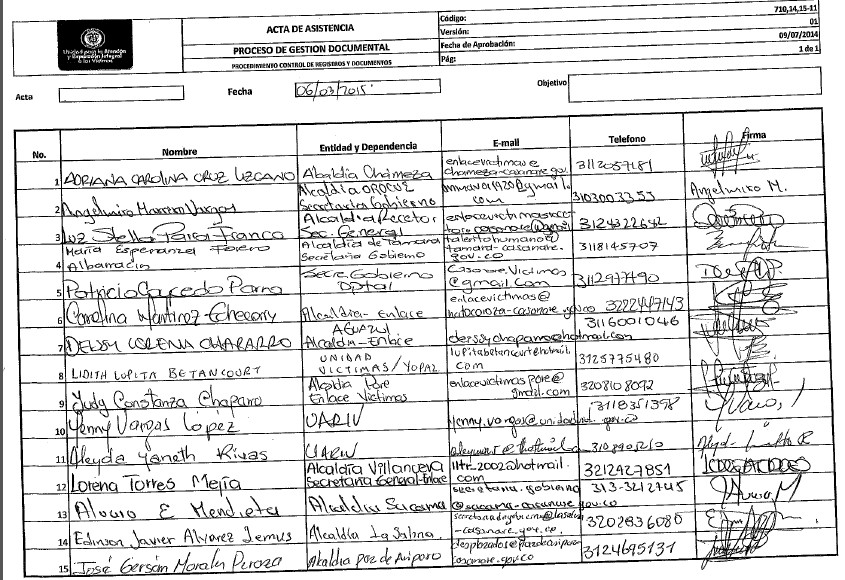 Unidad para la Atención
y Reparación Integral
a las Víctimas
ACTA DE ASISTENCIA
PROCESO DE GESTION DOCUMENTAL
PROCEDIMIENTO CONTROL DE REGISTROS Y DOCUMENTOS
Código: 710,14,15-11
Versión: 01
Fecha de Aprobación: 09/07/2014
Pág: 1 de 1
Acta Fecha 06/03/2015 Objetivo
No. Nombre Entidad y Dependencia E-mail Telefono Firma
1 ADRIANA CAROLINA CRUZ LIZCANO Alcaldia Chameza enlacevictimas@
chameza-casanare.gov. 3112057181
2 Angelmiro Marrero Vargas Alcaldía OROCUE
Secretaria Gobierno com 3103003353 Angelmiro M.
3 Luz Stella Parra Franco Alcaldia Recetor
Sec. General 3124322642
4 Maria Esperanza Forero
Albarracin Alcaldia de Tamara
Secretaria Gobierno talentohumano@
tamara-casanare.
gov.co 3118145707
5 Patricio Caicedo Parra Secre. Gobierno
Dptal Casanare.Victimas
@gmail.com 3112977490
6 Carolina Martinez Echeverry Alcaldia - enlace enlacevictimas@
hatocorozal-casanare.gov.co 3222447143
7 DEISSY LORENA CHAPARRO AGUAZUL
Alcaldia-Enlace deissychaparro@hotmail.com 3116001046
8 LIDITH LUPITA BETANCOURT UNIDAD
VICTIMAS/YOPAL lupitabetancourt@hotmail.
com 3125775480
9 Judy Constanza Chaparro Alcaldia Pore
Enlace Victimas enlacevictimaspore@
gmail.com 3208108092
10 Yenny Vargas López UARIV 3118351398
11 Aleyda Yaneth Rivas UARIV
12 Lorena Torres Mejía Alcaldía Villanueva
Secretaria General-Enlace 2002@hotmail.
com 3212927851
13 Alvaro E Mendieta Alcaldia Sacama secretaria.gobierno
@sacama-casanare.gov.co 313-3212745
14 Edinson Javier Alvarez Lemus Alcaldía La Salina -casanare.gov.co 3202836080
15 José Gersán Morales Alcaldia paz de Ariporo desplazados@pazdeariporo-
casanare.gov.co 3124695131